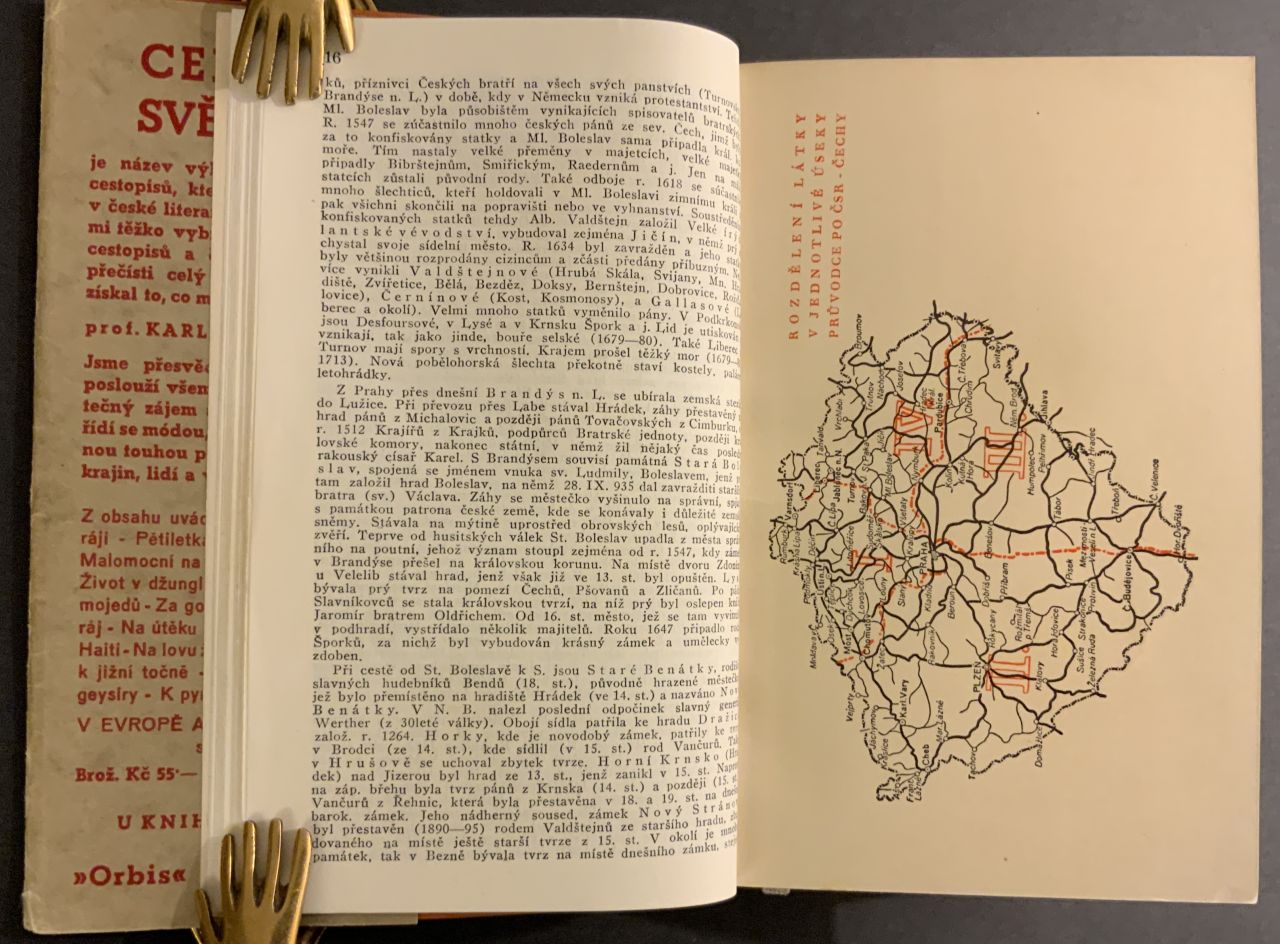 CE
SVĚ
je název vý
cestopisů, kte
v české litera
mi těžko vyb
cestopisů a
přečísti celý
získal to, co m
prof. KARL
Jsme přesvěd
poslouží všem
tečný zájem
řídí se módou,
nou touhou p
krajin, lidí a
Z obsahu uvád
ráji - Pětiletka
Malomocní na
Život v džungl
mojedů - Za go
ráj - Na útěku
Haiti - Na lovu
k jižní točně -
geysíry - K py
V EVROPĚ A
Brož. Kč 55·—
U KNIH
»Orbis«
16
ků, příznivci Českých bratří na všech svých panstvích (Turnov
Brandýse n. L.) v době, kdy v Německu vzniká protestantství.
Ml. Boleslav byla působištěm vynikajících spisovatelů
R. 1547 se zúčastnilo mnoho českých pánů ze sev. Čech, jimž
za to konfiskovány statky a Ml. Boleslav sama připadla král.
moře. Tím nastaly velké přeměny v majetcích, velké
připadly Bibrštejnům, Smiřickým, Raedernům a j. Jen na
statcích zůstali původní rody. Také odboje r. 1618 se
mnoho šlechticů, kteří holdovali v Ml. Boleslavi zimnímu
pak všichni skončili na popravišti nebo ve vyhnanství.
konfiskovaných statků tehdy Alb. Valdštejn založil Velké
lantské vévodství, vybudoval zejména Jičín, v němž
chystal svoje sídelní město. R. 1634 byl zavražděn a jeho
byly většinou rozprodány cizincům a zčásti předány příbuzným.
více vynikli Valdštejnové (Hrubá Skála, Svijany, Mn.
diště, Zvířetice, Bělá, Bezděz, Doksy, Bernštejn, Dobrovice,
lovice), Černínové (Kost, Kosmonosy), a Gallasové
berec a okolí). Velmi mnoho statků vyměnilo pány. V
jsou Desfoursové, v Lysé a v Krnsku Špork a j. Lid je
vznikají, tak jako jinde, bouře selské (1679—80). Také
Turnov mají spory s vrchností. Krajem prošel těžký mor
1713). Nová pobělohorská šlechta překotně staví kostely,
letohrádky.
Z Prahy přes dnešní Brandýs n. L. se ubírala zemská
do Lužice. Při převozu přes Labe stával Hrádek, záhy přestavěný
hrad pánů z Michalovic a později pánů Tovačovských z Cimburka,
r. 1512 Krajířů z Krajků, podpůrců Bratrské jednoty, později
lovské komory, nakonec státní, v němž žil nějaký čas
rakouský císař Karel. S Brandýsem souvisí památná Stará
slav, spojená se jménem vnuka sv. Ludmily, Boleslavem, jenž
tam založil hrad Boleslav, na němž 28. IX. 935 dal zavražditi
bratra (sv.) Václava. Záhy se městečko vyšinulo na správní,
s památkou patrona české země, kde se konávaly i důležité
sněmy. Stávala na mýtině uprostřed obrovských lesů,
zvěří. Teprve od husitských válek St. Boleslav upadla z města
ního na poutní, jehož význam stoupl zejména od r. 1547, kdy
v Brandýse přešel na královskou korunu. Na místě dvoru
u Velelib stával hrad, jenž však již ve 13. st. byl opuštěn.
bývala prý tvrz na pomezí Čechů, Pšovanů a Zličanů. Po
Slavníkovců se stala královskou tvrzí, na níž prý byl oslepen
Jaromír bratrem Oldřichem. Od 16. st. město, jež se tam
v podhradí, vystřídalo několik majitelů. Roku 1647 připadlo
Šporků, za nichž byl vybudován krásný zámek a umělecky
zdoben.
Při cestě od St. Boleslavě k S. jsou Staré Benátky,
slavných hudebníků Bendů (18. st.), původně hrazené
jež bylo přemístěno na hradiště Hrádek (ve 14. st.) a nazváno
Benátky. V N. B. nalezl poslední odpočinek slavný
Werther (z 30leté války). Obojí sídla patřila ke hradu
založ. r. 1264. Horky, kde je novodobý zámek, patřily ke
v Brodci (ze 14. st.), kde sídlil (v 15. st.) rod Vančurů.
v Hrušově se uchoval zbytek tvrze. Horní Krnsko
dek) nad Jizerou byl hrad ze 13. st., jenž zanikl v 15. st.
na záp. břehu byla tvrz pánů z Krnska (14. st.) a později
Vančurů z Řehnic, která byla přestavěna v 18. a 19. st. na
barok. zámek. Jeho nádherný soused, zámek Nový
byl přestavěn (1890—95) rodem Valdštejnů ze staršího hradu,
dovaného na místě ještě starší tvrze z 15. st. V okolí je
památek, tak v Bezně bývala tvrz na místě dnešního zámku,
ROZDĚLENÍ LÁTKY
V JEDNOTLIVÉ ÚSEKY
PRŮVODCE PO ČSR - ČECHY
Broumov
Náchod
Trutnov
Josefov
Vrchlabí
Č. Třebová
Svitavy
Chrudim
Pardubice
IV
Jičín
Tanvald
Liberec
Jablonec n.N.
Turnov
Ml. Boleslav
Nymburk
Kolín
Kutná
Hora
III
Něm. Brod
Jihlava
Humpolec
Pelhřimov
Jindř. Hradec
Varnsdorf
Rumburk
Č. Lípa
Děčín
Ústí
Litoměřice
Lovosice
Louny
I
Slaný
Kladno
PRAHA
Beroun
Benešov
Tábor
Třeboň
Č. Velenice
Hor. Dvořiště
Č. Budějovice
Veselí n.L.
Písek
Příbram
Dobříš
Rokycany
Rožmitál
p. Třemš.
Strakonice
Horažďovice
Sušice
Železná Ruda
Klatovy
PLZEŇ
II
Domažlice
Tachov
Mar. Lázně
Cheb
Frant.
Lázně
Aš
Kraslice
Jáchymov
Karl. Vary
Vejprty
Chomutov
Most
Duchcov
Žatec
Rakovník